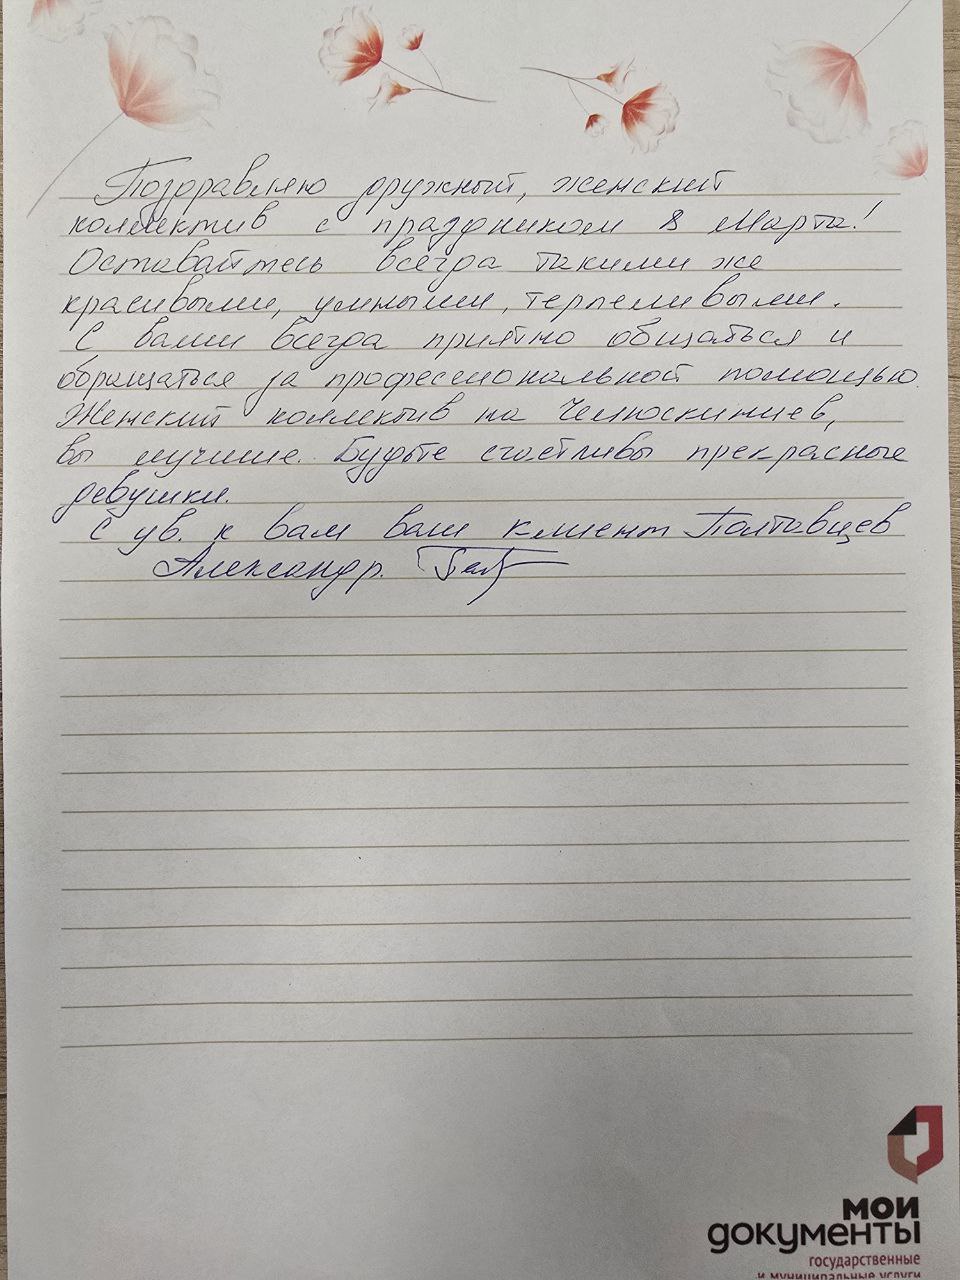 Поздравляю дружный, женский
коллектив с праздником 8 Марта!
Оставайтесь всегда такими же
красивыми, умными, терпеливыми.
С вами всегда приятно общаться и
обращаться за профессиональной помощью.
Женский коллектив на Челюскинцев,
вы лучшие. Будьте счастливы прекрасные
девушки.
С ув. к вам ваш клиент Полтавцев
Александр.
мои
документы
государственные
и муниципальные услуги